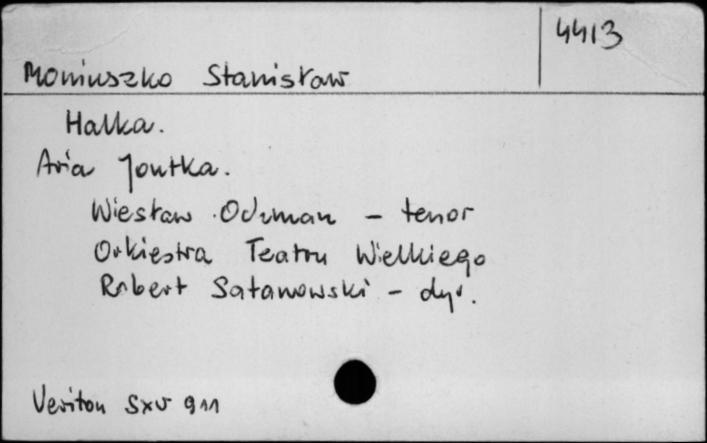 4413
Moniuszko Stanisław
Halka.
Aria Jontka.
Wiesław Ochman – tenor
Orkiestra Teatru Wielkiego
Robert Satanowski – dyr.
Veriton SXV 911